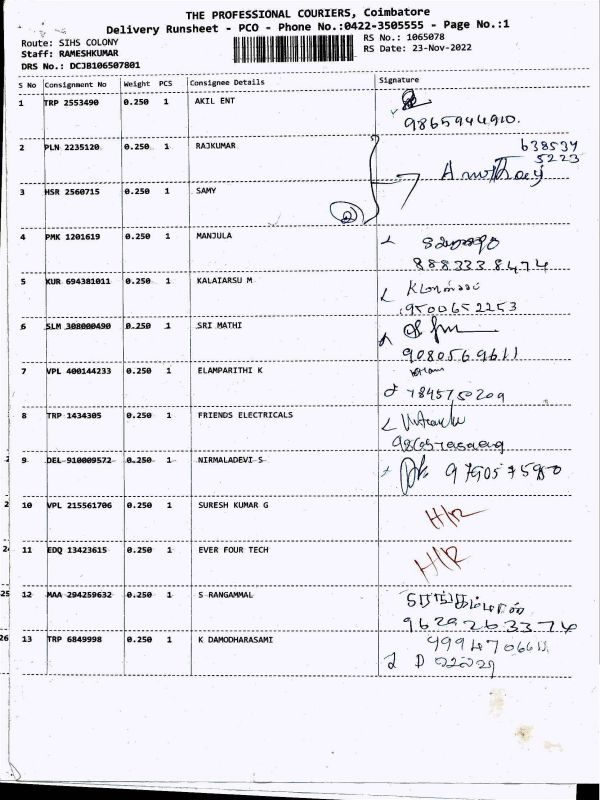 THE PROFESSIONAL COURIERS, Coimbatore
Delivery Runsheet - PCO - Phone No.:0422-3505555 - Page No.:1
Route: SIHS COLONY
RS No.: 1065078
Staff: RAMESHKUMAR
RS Date: 23-Nov-2022
DRS No.: DCJB106507801
S No Consignment No Weight PCS Consignee Details Signature
1 TRP 2553490 0.250 1 AKIL ENT
9865944910.
2 PLN 2235120 0.250 1 RAJKUMAR 638534
5223
3 HSR 2560715 0.250 1 SAMY
2
4 PMK 1201619 0.250 1 MANJULA
8883338474
5 KUR 694381011 0.250 1 KALAIARSU M
9500652253
6 SLM 308000490 0.250 1 SRI MATHI
9080569611
7 VPL 400144233 0.250 1 ELAMPARITHI K
7845750209
8 TRP 1434305 0.250 1 FRIENDS ELECTRICALS
9 DEL 910009572 0.250 1 NIRMALADEVI S 9790575950
10 VPL 215561706 0.250 1 SURESH KUMAR G H/R
11 EDQ 13423615 0.250 1 EVER FOUR TECH H/R
12 MAA 294259632 0.250 1 S RANGAMMAL
9629263374
13 TRP 6849998 0.250 1 K DAMODHARASAMI